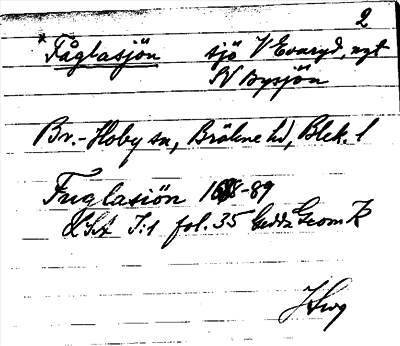 2
*Fåglasjön sjö V Evaryd, nyt
SV Bysjön
Br.-Hoby sn, Bräkne hd, Blek. l
Fuglasiön 1688-89
LSA I:1 fol. 35 Gedda Geom K